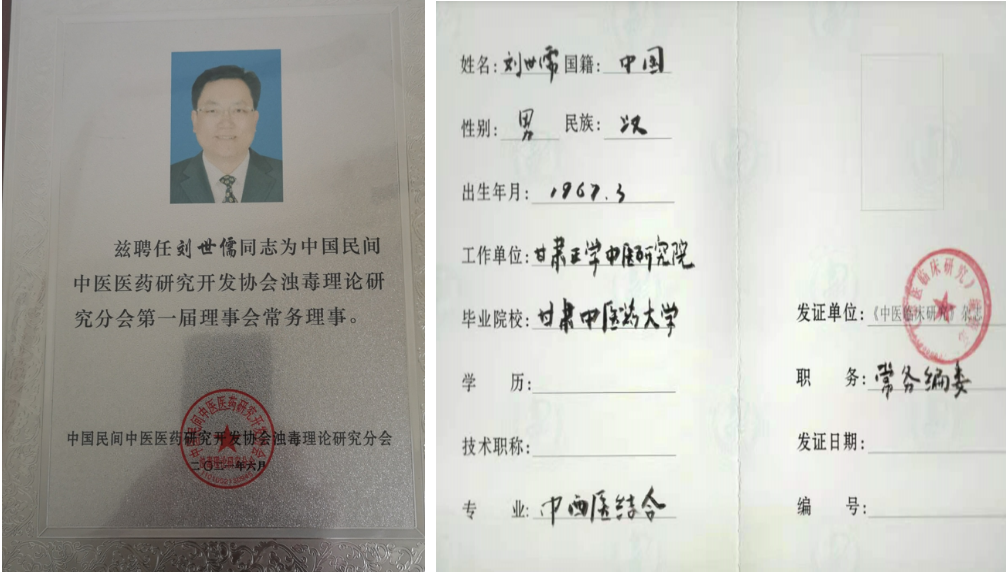 兹聘任刘世儒同志为中国民间
中医医药研究开发协会浊毒理论研
究分会第一届理事会常务理事。
中国民间中医医药研究开发协会浊毒理论研究分会
二〇二一年六月
姓名:刘世儒 国籍:中国
性别:男 民族:汉
出生年月:1967.3
工作单位:甘肃正学中医研究院
毕业院校:甘肃中医药大学
学 历:
技术职称:
专 业:中西医结合
发证单位:《中医临床研究》杂志
职 务:常务编委
发证日期:
编 号: